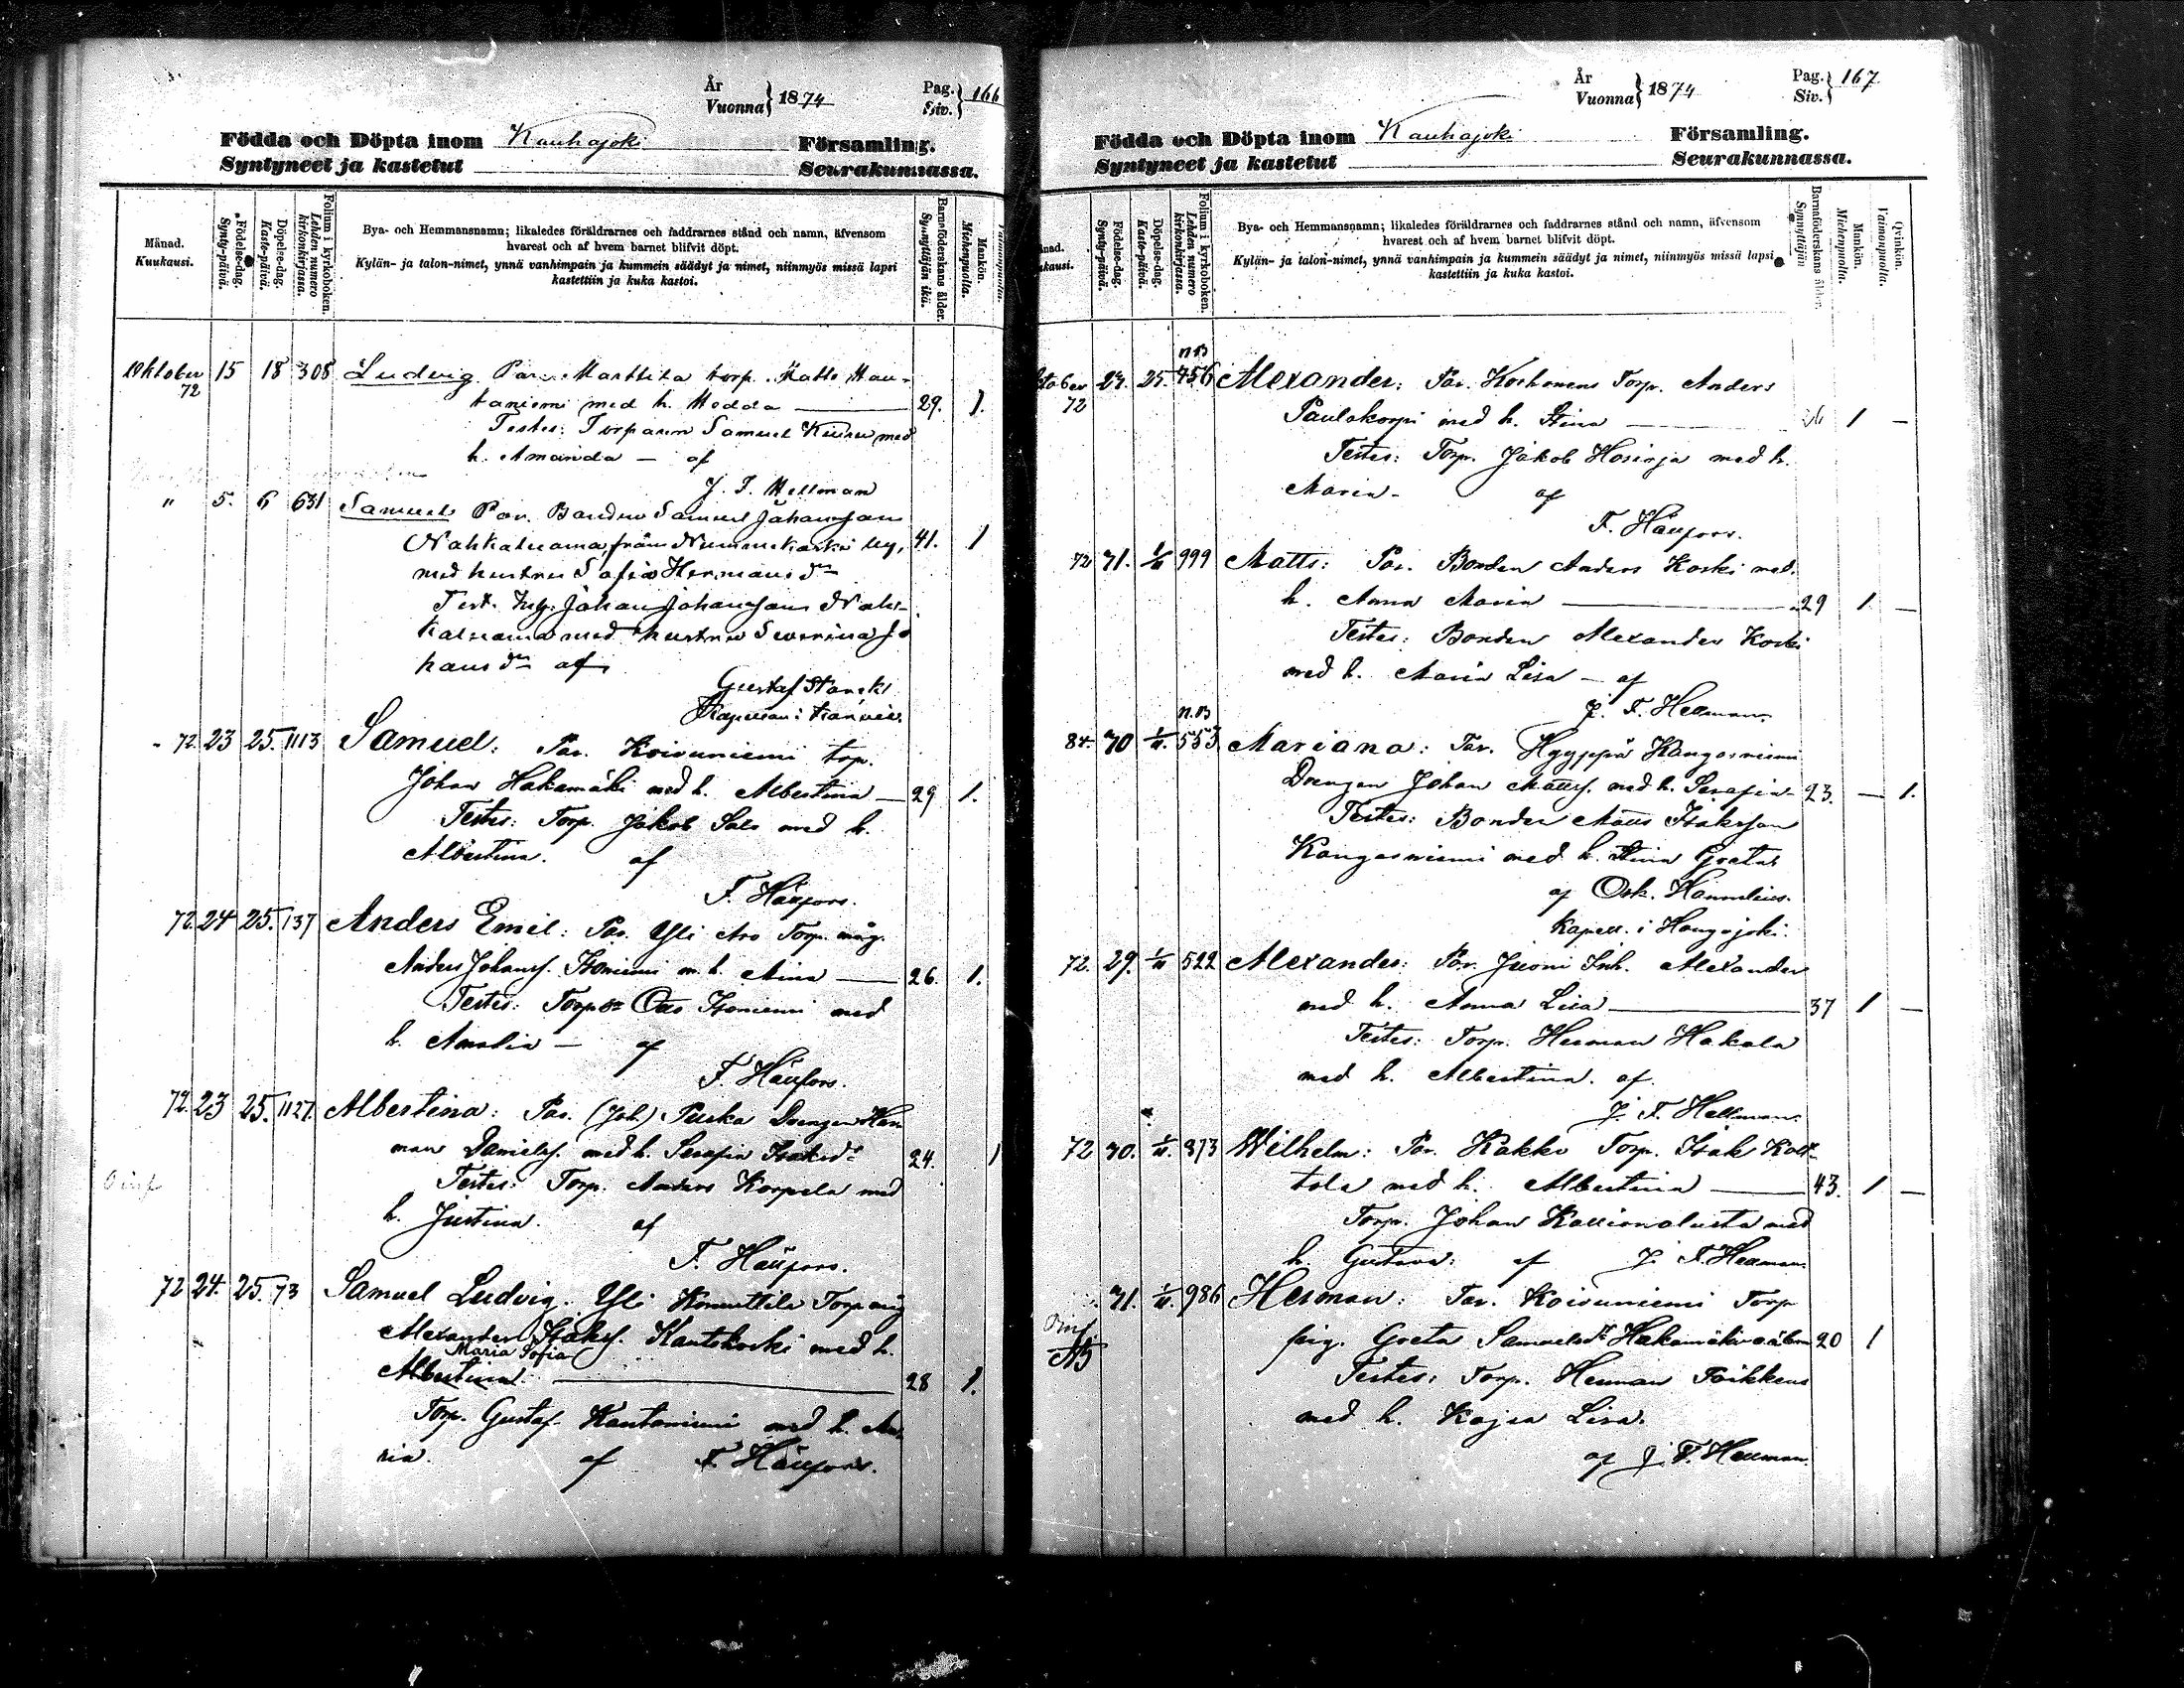 År
Vuonna } 1874
Pag.
Siv. } 166
Födda och Döpta inom Kauhajoki Församling.
Syntyneet ja kastetut Seurakunnassa.
Månad.
Kuukausi.
Födelse-dag.
Synty-päivä.
Döpelse-dag.
Kaste-päivä.
Folium i kyrkoboken.
Lehden numero kirkonkirjassa.
Bya- och Hemmansnamn; likaledes föräldrarnes och faddrarnes stånd och namn, äfvensom
hvarest och af hvem barnet blifvit döpt.
Kylän- ja talon-nimet, ynnä vanhimpain ja kummein säädyt ja nimet, niinmyös missä lapsi
kastettiin ja kuka kastoi.
Barnföderskans ålder.
Synnyttäjän ikä.
Mankön.
Miehenpuolta.
Oktober 15 18 308 Ludvig Par. Marttila torp. Matts Hau-
72
taniemi med h. Hedda 29. 1.
Testes: Torparen Samuel Kiuru med
h. Amanda — af
J. F. Hellman
" 5. 6 631 Samuel Par. Bonden Samuel Johansson
från Nummikoski by, 41. 1
med hustru Sofia Hermansdr
Test. Johan Johansson
med hustru Severina Jo
hansdr af
Gustaf
Kapellan i
" 72. 23 25. 1113 Samuel: Par. Koivuniemi torp.
Johan Hakamäki med h. Albertina — 29 1.
Testes: Torp. Jakob Salo med h.
Albertina. af
F. Häufors.
72. 24 25. 137 Anders Emil: Par. Yli Aro Torp. måg.
Anders Johanss. Isoniemi m. h. Aina — 26. 1.
Testes: Torp. Isoniemi med
h. Amalia — af
F. Häufors.
72. 23 25. 1127. Albertina: Par. (Joh.) Puska Drengen Her
man Daniels. med h. Serafia Isaksdr 24. 1
Testes: Torp. Anders Korpela med
h. Justina. af
F. Häufors.
72 24. 25. 73 Samuel Ludvig. Yli Knuuttila Torp. måg
Alexander Isakss. Kantokoski med h.
Maria Sofia
Albertina. 28 1.
Torp. Gustaf Kantoniemi med h. Ma
ria. af F. Häufors.
År
Vuonna } 1874
Pag.
Siv. } 167
Födda och Döpta inom Kauhajoki Församling.
Syntyneet ja kastetut Seurakunnassa.
Födelse-dag.
Synty-päivä.
Döpelse-dag.
Kaste-päivä.
Folium i kyrkoboken.
Lehden numero kirkonkirjassa.
Bya- och Hemmansnamn; likaledes föräldrarnes och faddrarnes stånd och namn, äfvensom
hvarest och af hvem barnet blifvit döpt.
Kylän- ja talon-nimet, ynnä vanhimpain ja kummein säädyt ja nimet, niinmyös missä lapsi
kastettiin ja kuka kastoi.
Barnföderskans ålder.
Synnyttäjän
Mankön.
Miehenpuolta.
Qvinkön.
Vaimonpuolta.
n.B
tober 24. 25. 456 Alexander: Par. Koskonens Torp. Anders
72
Paulakorpi med h. Stina — 1 —
Testes: Torp. Jakob Hosioja med h.
Maria. af
F. Häufors.
72 31. 1/11 999 Matts: Par. Bonden Anders Koski med
h. Anna Maria — 29 1. —
Testes: Bonden Alexander Koski
med h. Maria Lisa — af
J. F. Hellman.
n.B
84. 30 1/11. 553 Mariana: Par. Hyyppä Kangasniemi
Drengen Johan Mattss. med h. Serafia 23. — 1.
Testes: Bonden Matts Isaksson
Kangasniemi med h. Stina Greta
af Osk. Hammelius.
Kapell. i
72. 29. 1/11 522 Alexander: Par. Juoni Inh. Alexander
med h. Anna Lisa — 37 1 —
Testes: Torp. Herman Hakala
med h. Albertina. af
J. F. Hellman.
72 30. 1/11. 873 Wilhelm: Par. Kakko Torp. Isak
tola med h. Albertina — 43. 1 —
Torp. Johan Kallionalusta med
h. Gustava: af J. F. Hellman
31. 1/11. 986 Herman: Par. Koivuniemi Torp
pig. Greta Samuelsdr Hakamäki 20 1
Testes: Torp. Herman Poikkeus
med h. Kajsa Lisa.
af J. F. Hellman.